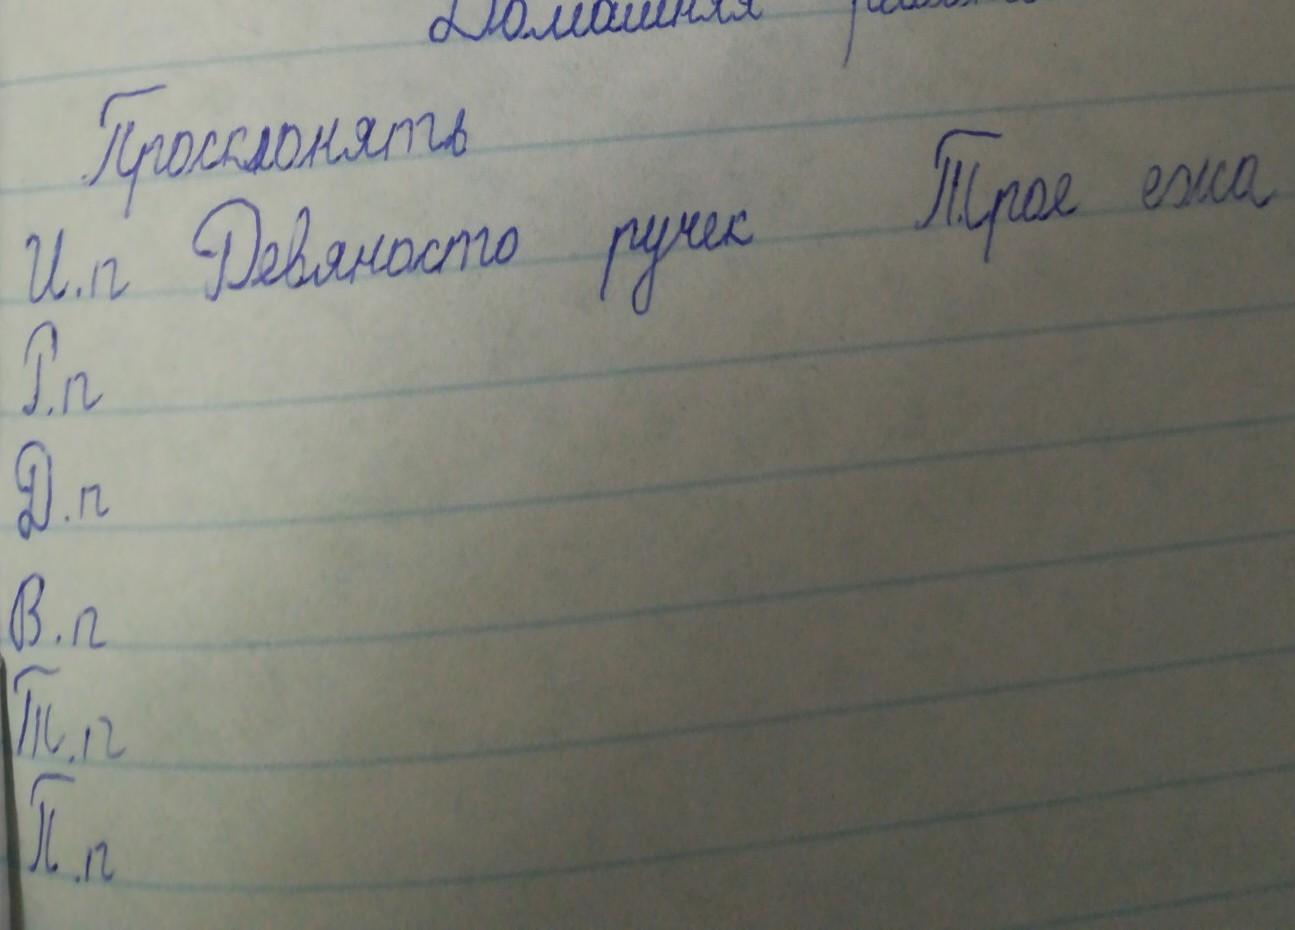 Домашняя
Просклонять
И.п Девяносто ручек Трое ежа
Р.п
Д.п
В.п
Т.п
П.п